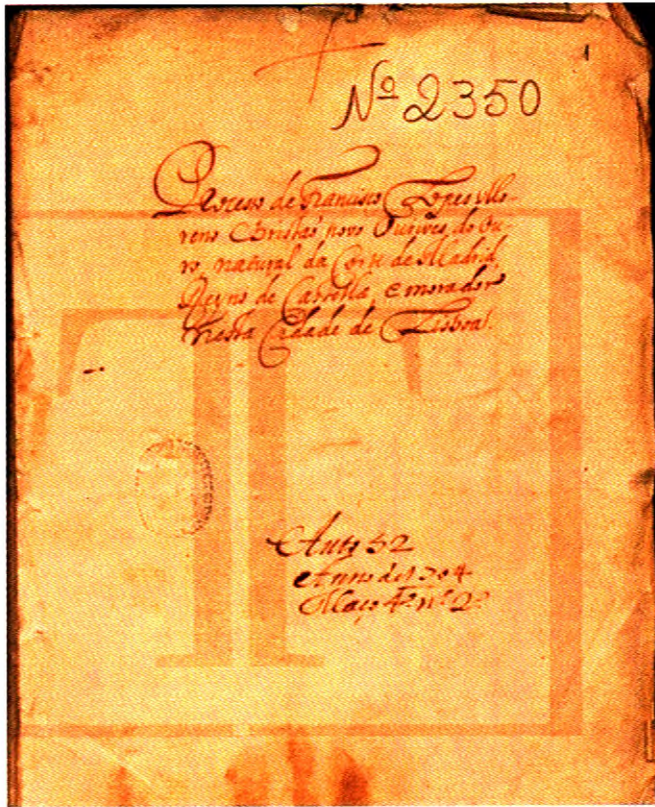 Nº 2350
Processo de Francisco Lopes Mo
reno Christaõ novo Ourives do Ou-
ro, natural da Corte de Madrid,
Reyno de Castella, e morador
nesta Cidade de Lisboa.
Auto 52
Anno de 1704
Maço 4º nº 2º